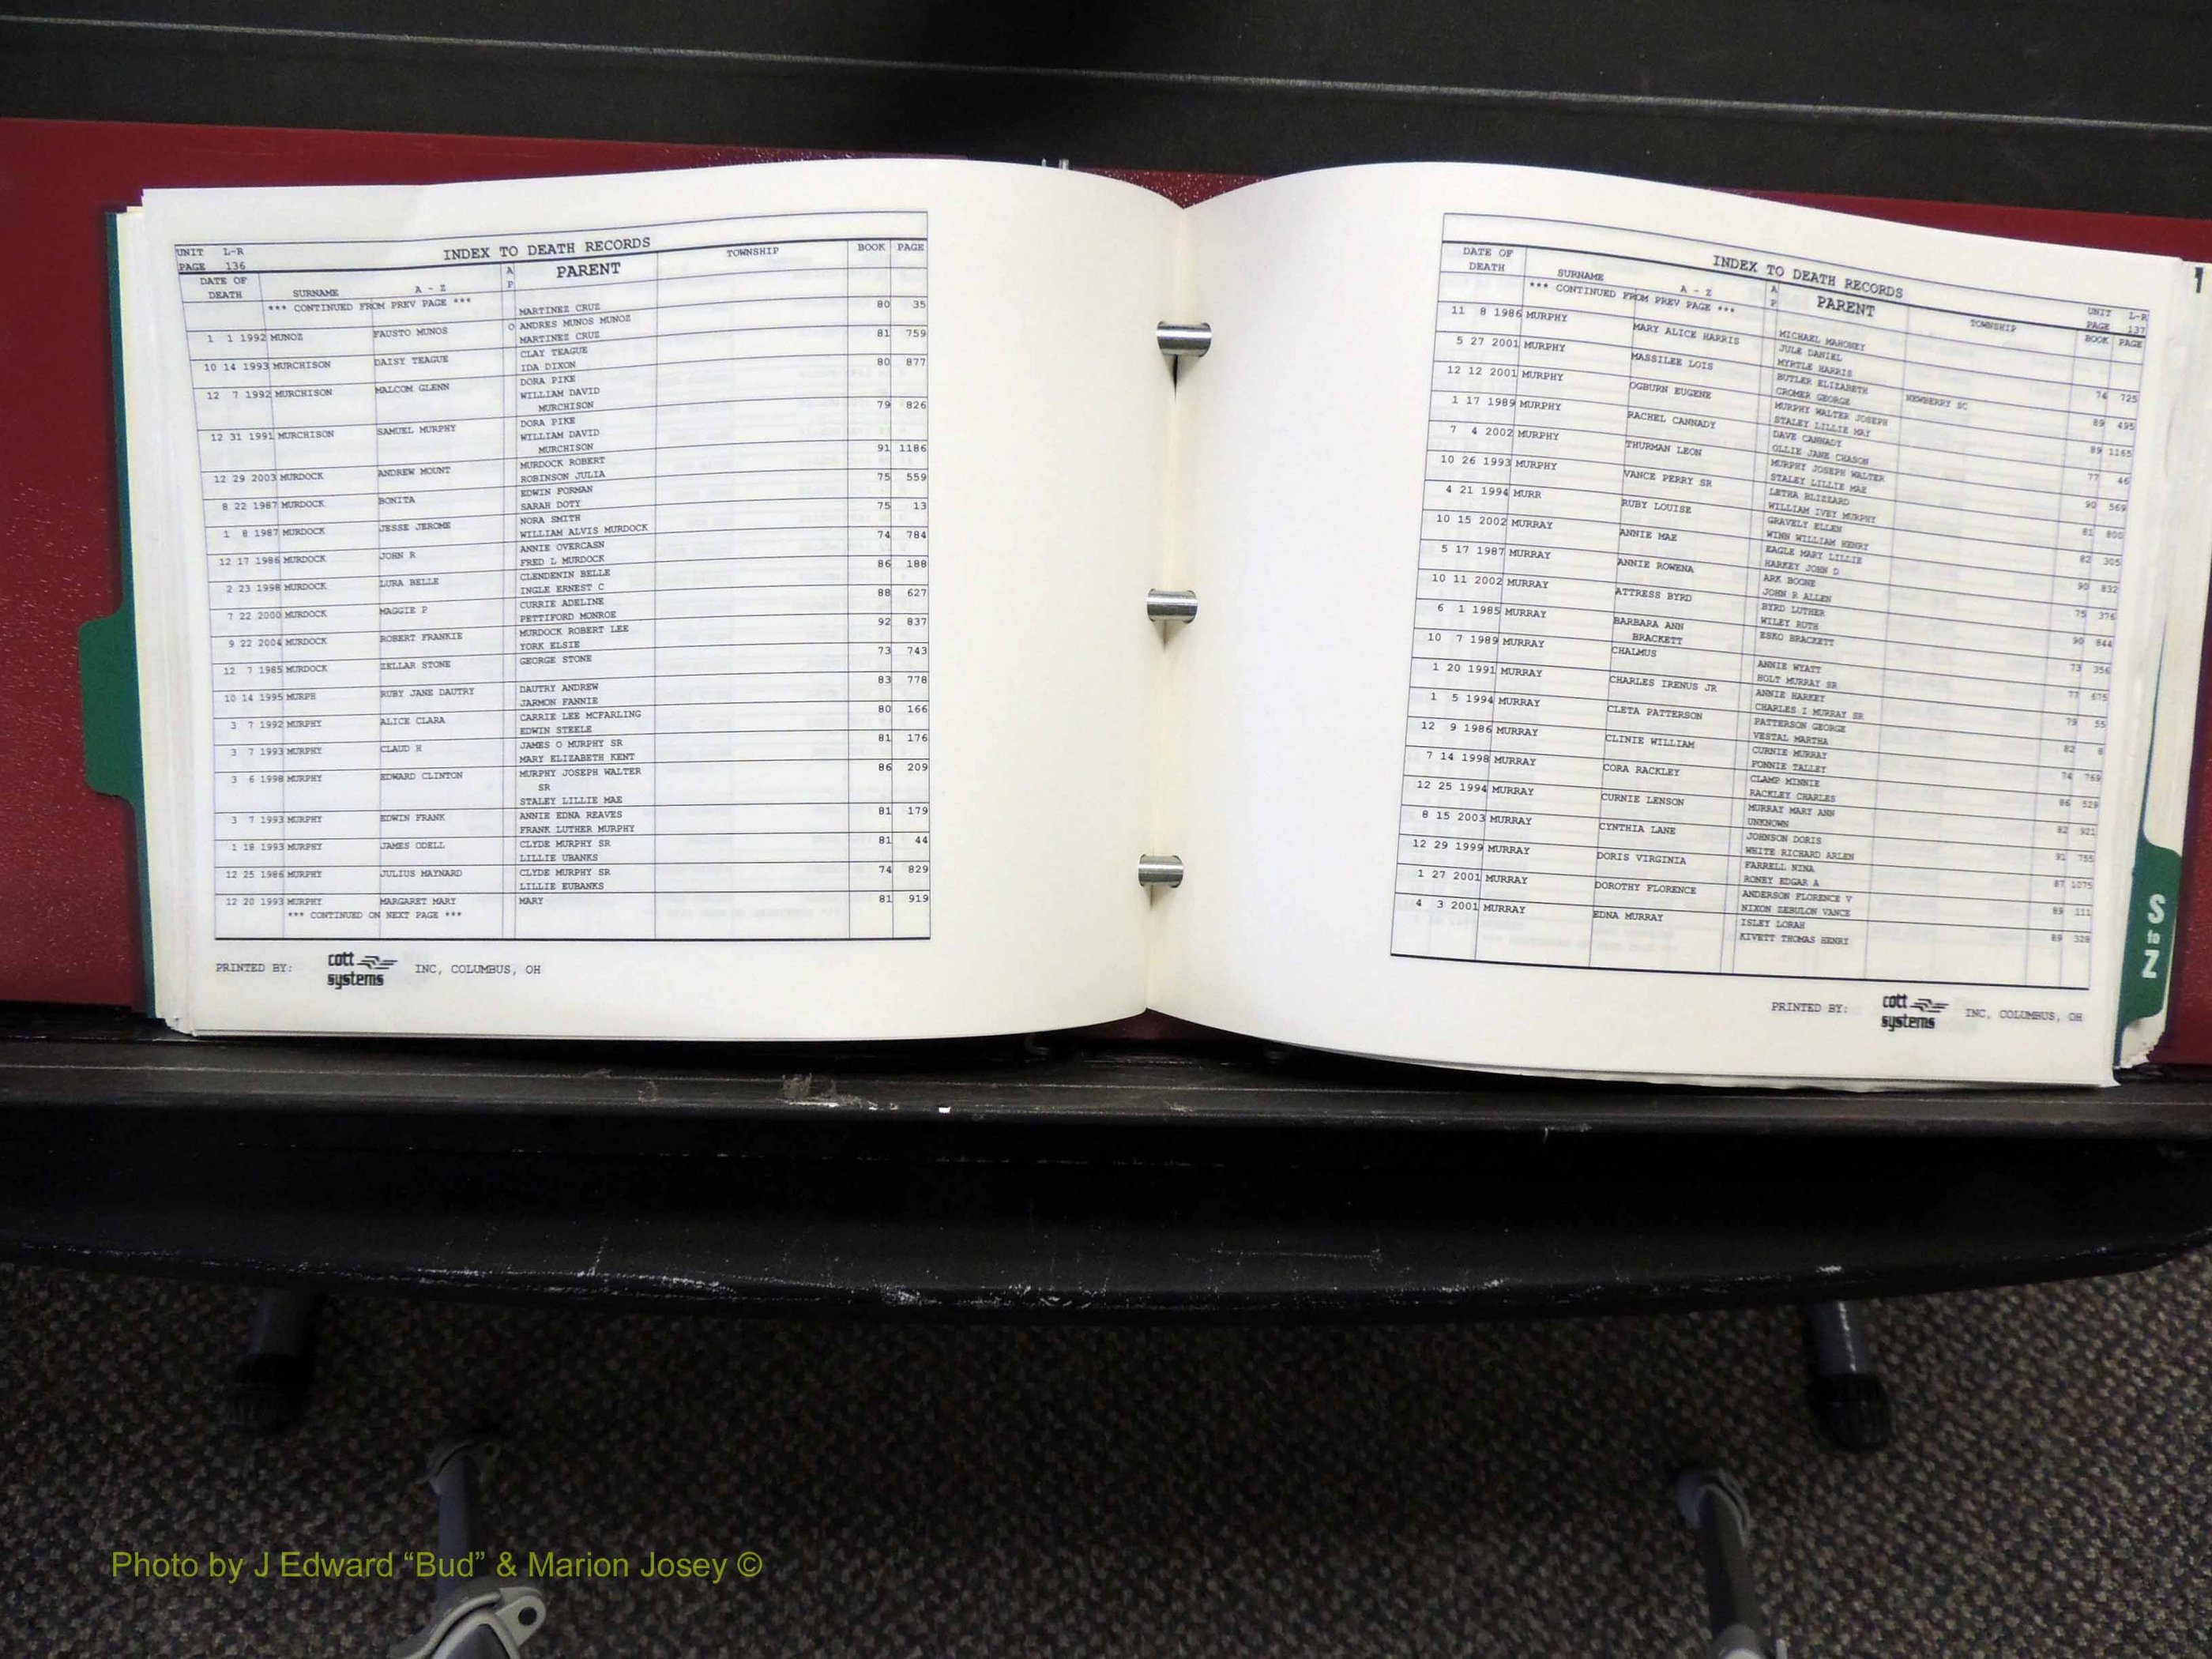 UNIT L-R
PAGE 136
INDEX TO DEATH RECORDS
TOWNSHIP BOOK PAGE
DATE OF DEATH SURNAME A - Z A P PARENT
*** CONTINUED FROM PREV PAGE *** MARTINEZ CRUZ 80 35
1 1 1992 MUNOZ FAUSTO MUNOS O ANDRES MUNOS MUNOZ 81 759
MARTINEZ CRUZ
10 14 1993 MURCHISON DAISY TEAGUE CLAY TEAGUE 80 877
IDA DIXON
12 7 1992 MURCHISON MALCOM GLENN DORA PIKE
WILLIAM DAVID
MURCHISON 79 826
12 31 1991 MURCHISON SAMUEL MURPHY DORA PIKE
WILLIAM DAVID
MURCHISON 91 1186
12 29 2003 MURDOCK ANDREW MOUNT MURDOCK ROBERT
ROBINSON JULIA 75 559
8 22 1987 MURDOCK BONITA EDWIN FORMAN
SARAH DOTY 75 13
1 8 1987 MURDOCK JESSE JEROME NORA SMITH
WILLIAM ALVIS MURDOCK 74 784
12 17 1986 MURDOCK JOHN R ANNIE OVERCASN
FRED L MURDOCK 86 188
2 23 1998 MURDOCK LURA BELLE CLENDENIN BELLE
INGLE ERNEST C 88 627
7 22 2000 MURDOCK MAGGIE P CURRIE ADELINE
PETTIFORD MONROE 92 837
9 22 2004 MURDOCK ROBERT FRANKIE MURDOCK ROBERT LEE
YORK ELSIE 73 743
12 7 1985 MURDOCK ZELLAR STONE GEORGE STONE
83 778
10 14 1995 MURPH RUBY JANE DAUTRY DAUTRY ANDREW
JARMON FANNIE 80 166
3 7 1992 MURPHY ALICE CLARA CARRIE LEE MCFARLING
EDWIN STEELE 81 176
3 7 1993 MURPHY CLAUD H JAMES O MURPHY SR
MARY ELIZABETH KENT 86 209
3 6 1998 MURPHY EDWARD CLINTON MURPHY JOSEPH WALTER
SR
STALEY LILLIE MAE
3 7 1993 MURPHY EDWIN FRANK ANNIE EDNA REAVES 81 179
FRANK LUTHER MURPHY
1 18 1993 MURPHY JAMES ODELL CLYDE MURPHY SR 81 44
LILLIE UBANKS
12 25 1986 MURPHY JULIUS MAYNARD CLYDE MURPHY SR 74 829
LILLIE EUBANKS
12 20 1993 MURPHY MARGARET MARY MARY 81 919
*** CONTINUED ON NEXT PAGE ***
PRINTED BY: cott systems INC, COLUMBUS, OH
INDEX TO DEATH RECORDS
UNIT L-R
PAGE 137
DATE OF DEATH SURNAME A - Z A P PARENT TOWNSHIP BOOK PAGE
*** CONTINUED FROM PREV PAGE *** MICHAEL MAHONEY
11 8 1986 MURPHY MARY ALICE HARRIS JULE DANIEL 74 725
MYRTLE HARRIS
5 27 2001 MURPHY MASSILEE LOIS BUTLER ELIZABETH NEWBERRY SC 89 495
CROMER GEORGE
12 12 2001 MURPHY OGBURN EUGENE MURPHY WALTER JOSEPH 89 1165
STALEY LILLIE MAY
1 17 1989 MURPHY RACHEL CANNADY DAVE CANNADY 77 46
OLLIE JANE CHASON
7 4 2002 MURPHY THURMAN LEON MURPHY JOSEPH WALTER 90 569
STALEY LILLIE MAE
10 26 1993 MURPHY VANCE PERRY SR LETHA BLIZZARD 81 800
WILLIAM IVEY MURPHY
4 21 1994 MURR RUBY LOUISE GRAVELY ELLEN 82 305
WINN WILLIAM HENRY
10 15 2002 MURRAY ANNIE MAE EAGLE MARY LILLIE 90 832
HARKEY JOHN D
5 17 1987 MURRAY ANNIE ROWENA ARK BOONE 75 376
JOHN R ALLEN
10 11 2002 MURRAY ATTRESS BYRD BYRD LUTHER 90 844
WILEY RUTH
6 1 1985 MURRAY BARBARA ANN BRACKETT ESKO BRACKETT 73 356
10 7 1989 MURRAY CHALMUS ANNIE WYATT 77 675
HOLT MURRAY SR
1 20 1991 MURRAY CHARLES IRENUS JR ANNIE HARKEY 79 55
CHARLES I MURRAY SR
1 5 1994 MURRAY CLETA PATTERSON PATTERSON GEORGE 82 8
VESTAL MARTHA
12 9 1986 MURRAY CLINIE WILLIAM CURNIE MURRAY 74 769
FONNIE TALLEY
7 14 1998 MURRAY CORA RACKLEY CLAMP MINNIE 86 529
RACKLEY CHARLES
12 25 1994 MURRAY CURNIE LENSON MURRAY MARY ANN 82 921
UNKNOWN
8 15 2003 MURRAY CYNTHIA LANE JOHNSON DORIS 91 755
WHITE RICHARD ARLEN
12 29 1999 MURRAY DORIS VIRGINIA FARRELL NINA 87 1075
RONEY EDGAR A
1 27 2001 MURRAY DOROTHY FLORENCE ANDERSON FLORENCE V 89 111
NIXON ZEBULON VANCE
4 3 2001 MURRAY EDNA MURRAY ISLEY LORAH 89 328
KIVETT THOMAS HENRY
PRINTED BY: cott systems INC, COLUMBUS, OH
S to Z
Photo by J Edward “Bud” & Marion Josey ©